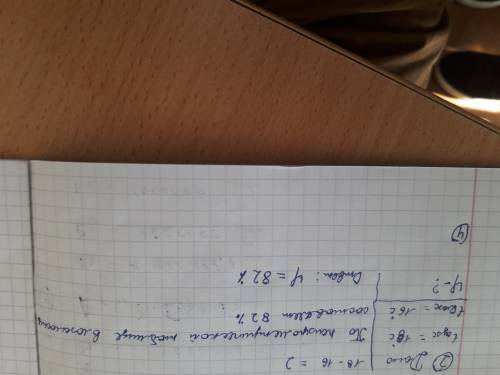 ② Дано
tсух = 18°
tвлаж = 16°
φ - ?
18 - 16 = 2
По психрометрической таблице влажность
составляет 82 %
Ответ: φ = 82 %
④